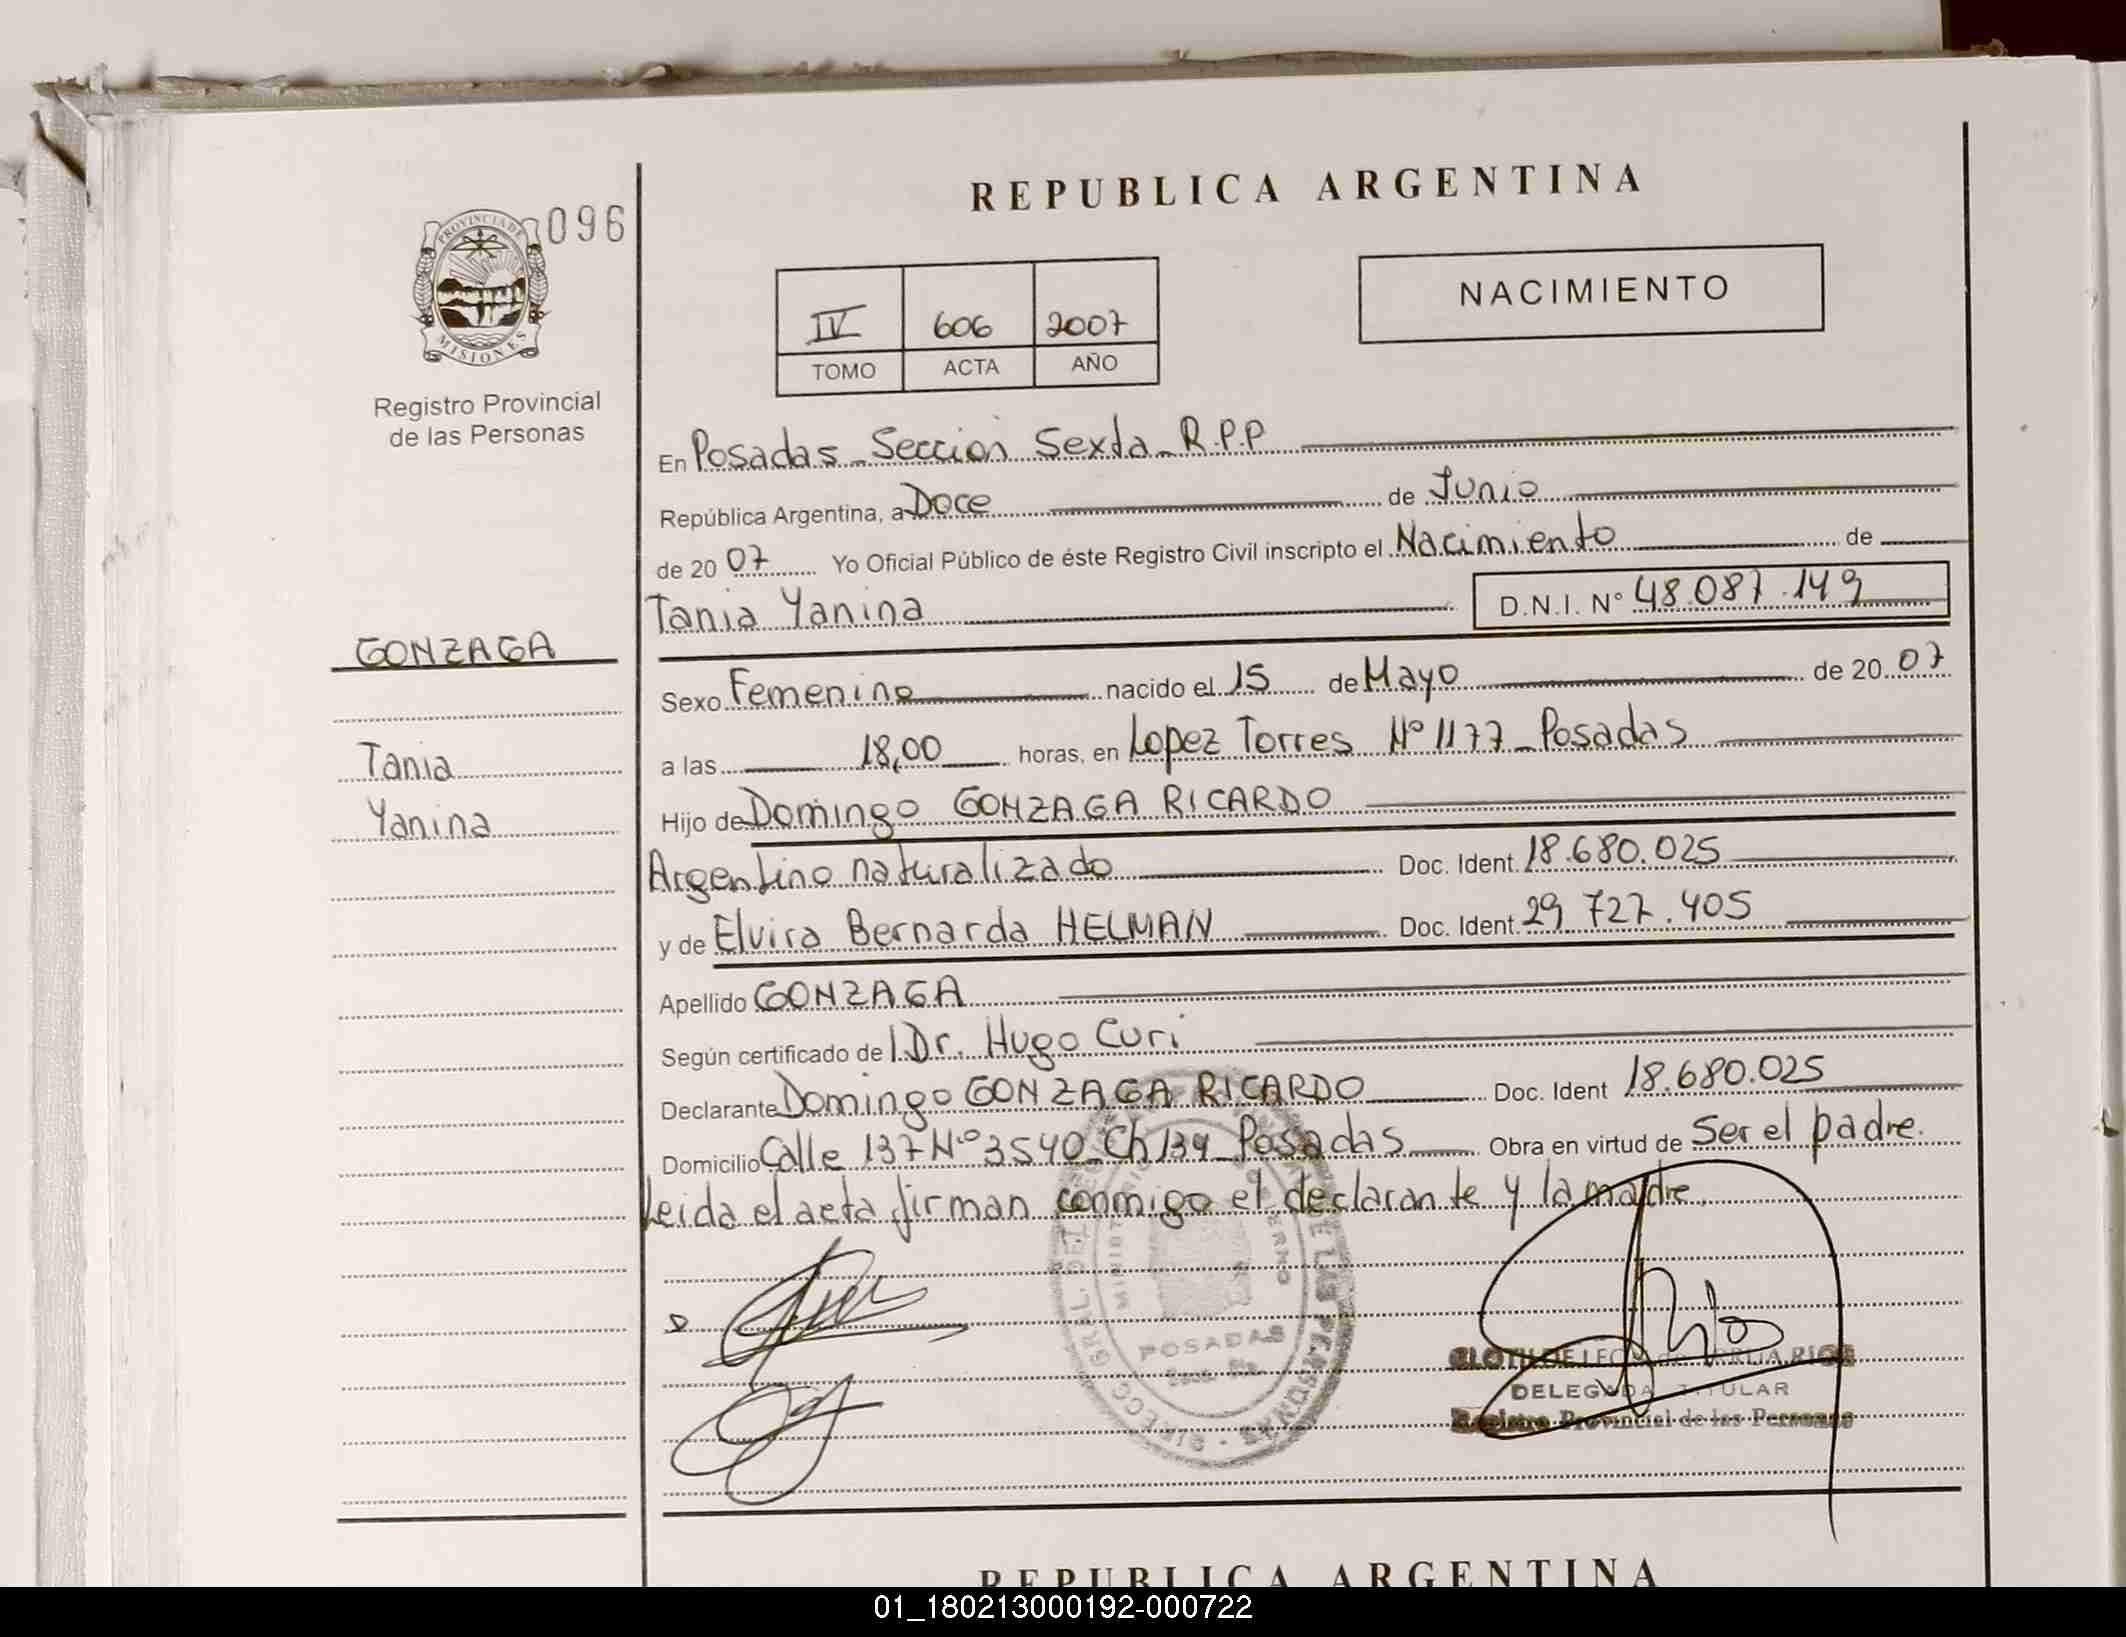 REPUBLICA ARGENTINA
096
PROVINCIA DE
MISIONES
Registro Provincial
de las Personas
NACIMIENTO
IV 606 2007
TOMO ACTA AÑO
En Posadas - Seccion Sexta - R.P.P
República Argentina, a Doce de Junio
de 20 07 Yo Oficial Público de éste Registro Civil inscripto el Nacimiento de
Tania Yanina D.N.I. Nº 48.087.149
GONZAGA
Tania
Yanina
Sexo Femenino nacido el 15 de Mayo de 20 07
a las 18,00 horas, en Lopez Torres Nº 1177 - Posadas
Hijo de Domingo GONZAGA RICARDO
Argentino naturalizado Doc. Ident. 18.680.025
y de Elvira Bernarda HELMAN Doc. Ident. 29 727.405
Apellido GONZAGA
Según certificado de l Dr. Hugo Curi
Declarante Domingo GONZAGA RICARDO Doc. Ident 18.680.025
Domicilio Calle 137 Nº 3540 - Ch 134 - Posadas Obra en virtud de Ser el padre.
Leida el acta firman conmigo el declarante y la madre.
POSADAS
DE LAS PERSONAS
DELEGADA TITULAR
Registro Provincial de las Personas
REPUBLICA ARGENTINA
01_180213000192-000722